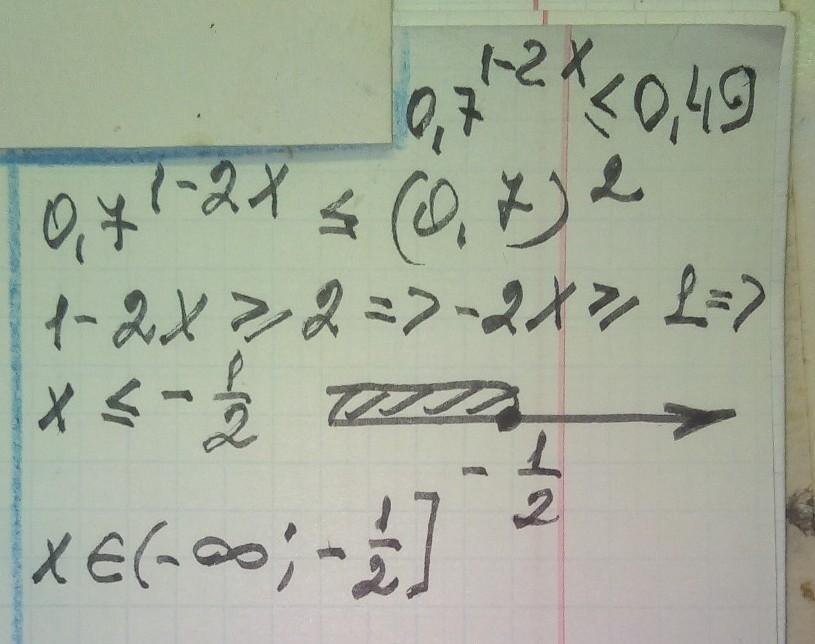 0,7^{1-2x} ≤ 0,49
0,7^{1-2x} ≤ (0,7)^2
1-2x ≥ 2 => -2x ≥ 1 =>
x ≤ -1/2
-1/2
x ∈ (-∞; -1/2]